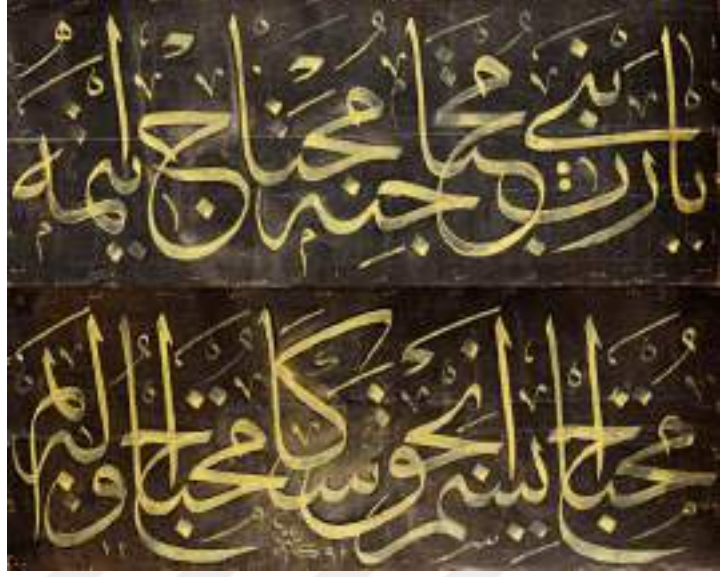 يارب بني محتاجنه محتاج ايتمه
محتاج ايسم انجق سكا محتاج اوله يم